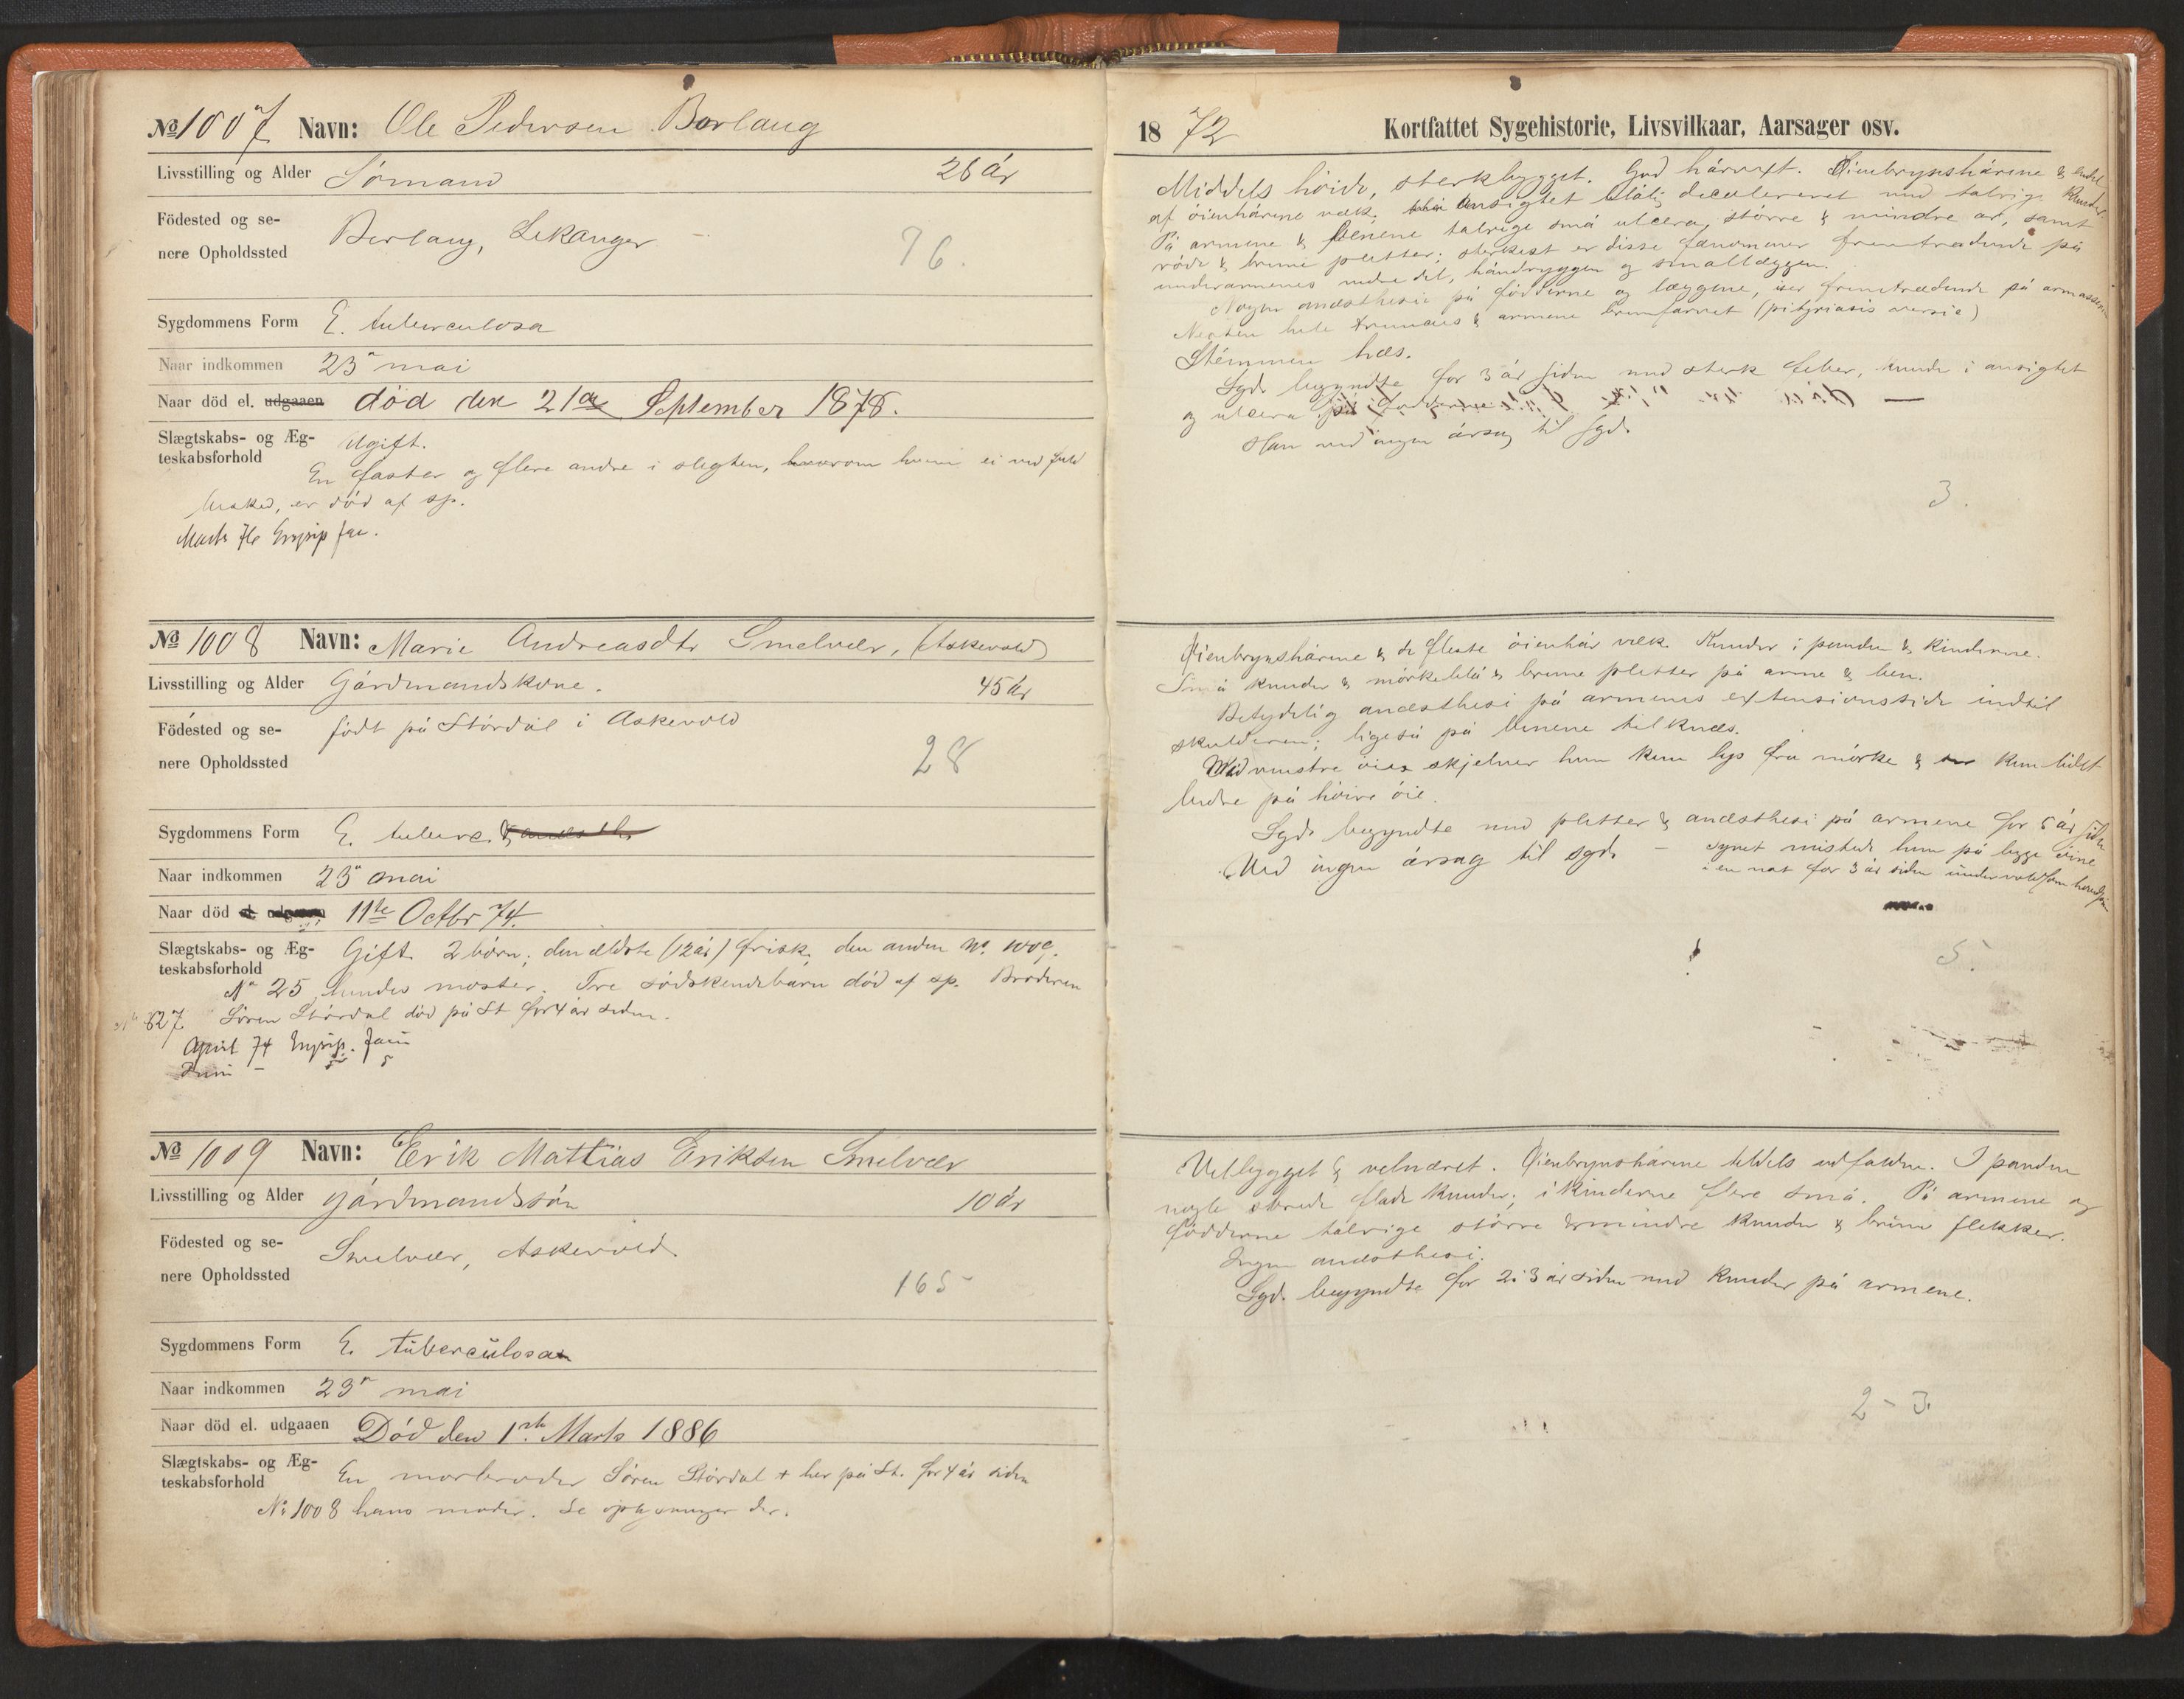 № 1007 Navn: Ole Pedersen Borlaug
Livsstilling og Alder Sömand 26 år
Födested og se-
nere Opholdssted
Borlaug, Lekanger
76.
Sygdommens Form E. tuberculosa
Naar indkommen 23 mai
Naar död el. udgaaen död den 21de September 1878.
Slægtskabs- og Æg-
teskabsforhold
Ugift.
En faster og flere andre i slegten, hvorom ei ved fuld
besked, er död af sp.
Marts 76 Erysip fac.
№ 1008 Navn: Marie Andreasdtr Smelvær, (Askevold)
Livsstilling og Alder Gårdmandskone. 45 år
Födested og se-
nere Opholdssted
födt på Stördal i Askevold
28
Sygdommens Form E. tuberc. & anæsth.
Naar indkommen 23 mai
Naar död 11te Octbr 74.
Slægtskabs- og Æg-
teskabsforhold
Gift. 2 börn; den ældste (12 år) frisk, den anden No. 1009.
No 25 hendes moster. Tre södskendebarn död af sp. Broderen
No 827 Sören Stördal död på St for 4 år siden.
April 74 Erysip. faciei
Juni -
№ 1009 Navn: Erik Mattias Eriksen Smelvær
Livsstilling og Alder Gårdmandssön 10 år
Födested og se-
nere Opholdssted
Smelvær, Askevold
165
Sygdommens Form E. tuberculosa
Naar indkommen 23 mai
Naar död el. udgaaen Död den 1ste Marts 1886
Slægtskabs- og Æg-
teskabsforhold
En morbroder Sören Stördal + her på St. for 4 år siden
No 1008 hans moder. Se der.
1872 Kortfattet Sygehistorie, Livsvilkaar, Aarsager osv.
Middels höide, sterkbygget. God hårvext. Öienbrynshårene & endel
af öienhårene væk. ansigtet blålig decoloreret med talrige knuder.
På armene & benene talrige små ulcera, större & mindre ar, samt
röde & brune pletter; sterkest er disse fænomener fremtrædende på
underarmenes nedre del, håndryggen og smallæggen.
Nogen anæsthesie på födderne og læggene, især fremtrædende på
Næsten hele truncus & armene brunfarvet (pityriasis versic)
Stemmen hæs.
Sygd. begyndte for 3 år siden med sterk feber, knude i ansigtet
og ulcera på födderne.
Han ved ingen årsag til sygd.
3.
Öienbrynshårene & de fleste öienhår væk. Knuder i panden & kinderne.
Små knuder & mörkeblå & brune pletter på arme & ben.
Betydelig anæsthesi på armenes extensionsside indtil
skulderen; ligeså på benene til knæs.
Med venstre öie skjelner hun kun lys fra mörke & kun lidet
bedre på höire öie.
Sygd. begyndte med pletter & anæsthesi på armene for 5 år siden
Ved ingen årsag til sygd. - Synet mistede hun på begge öine
i en nat for 3 år siden under
5.
Velbygget & velnæret. Öienbrynshårene tildels udfaldne. I panden
nogle brede flade knuder; i kinderne flere små. På armene og
födderne talrige större & mindre knuder & brune flekker.
Ingen anæsthesi.
Sygd. begyndte for 2 à 3 år siden med knuder på armene.
2 - 3.